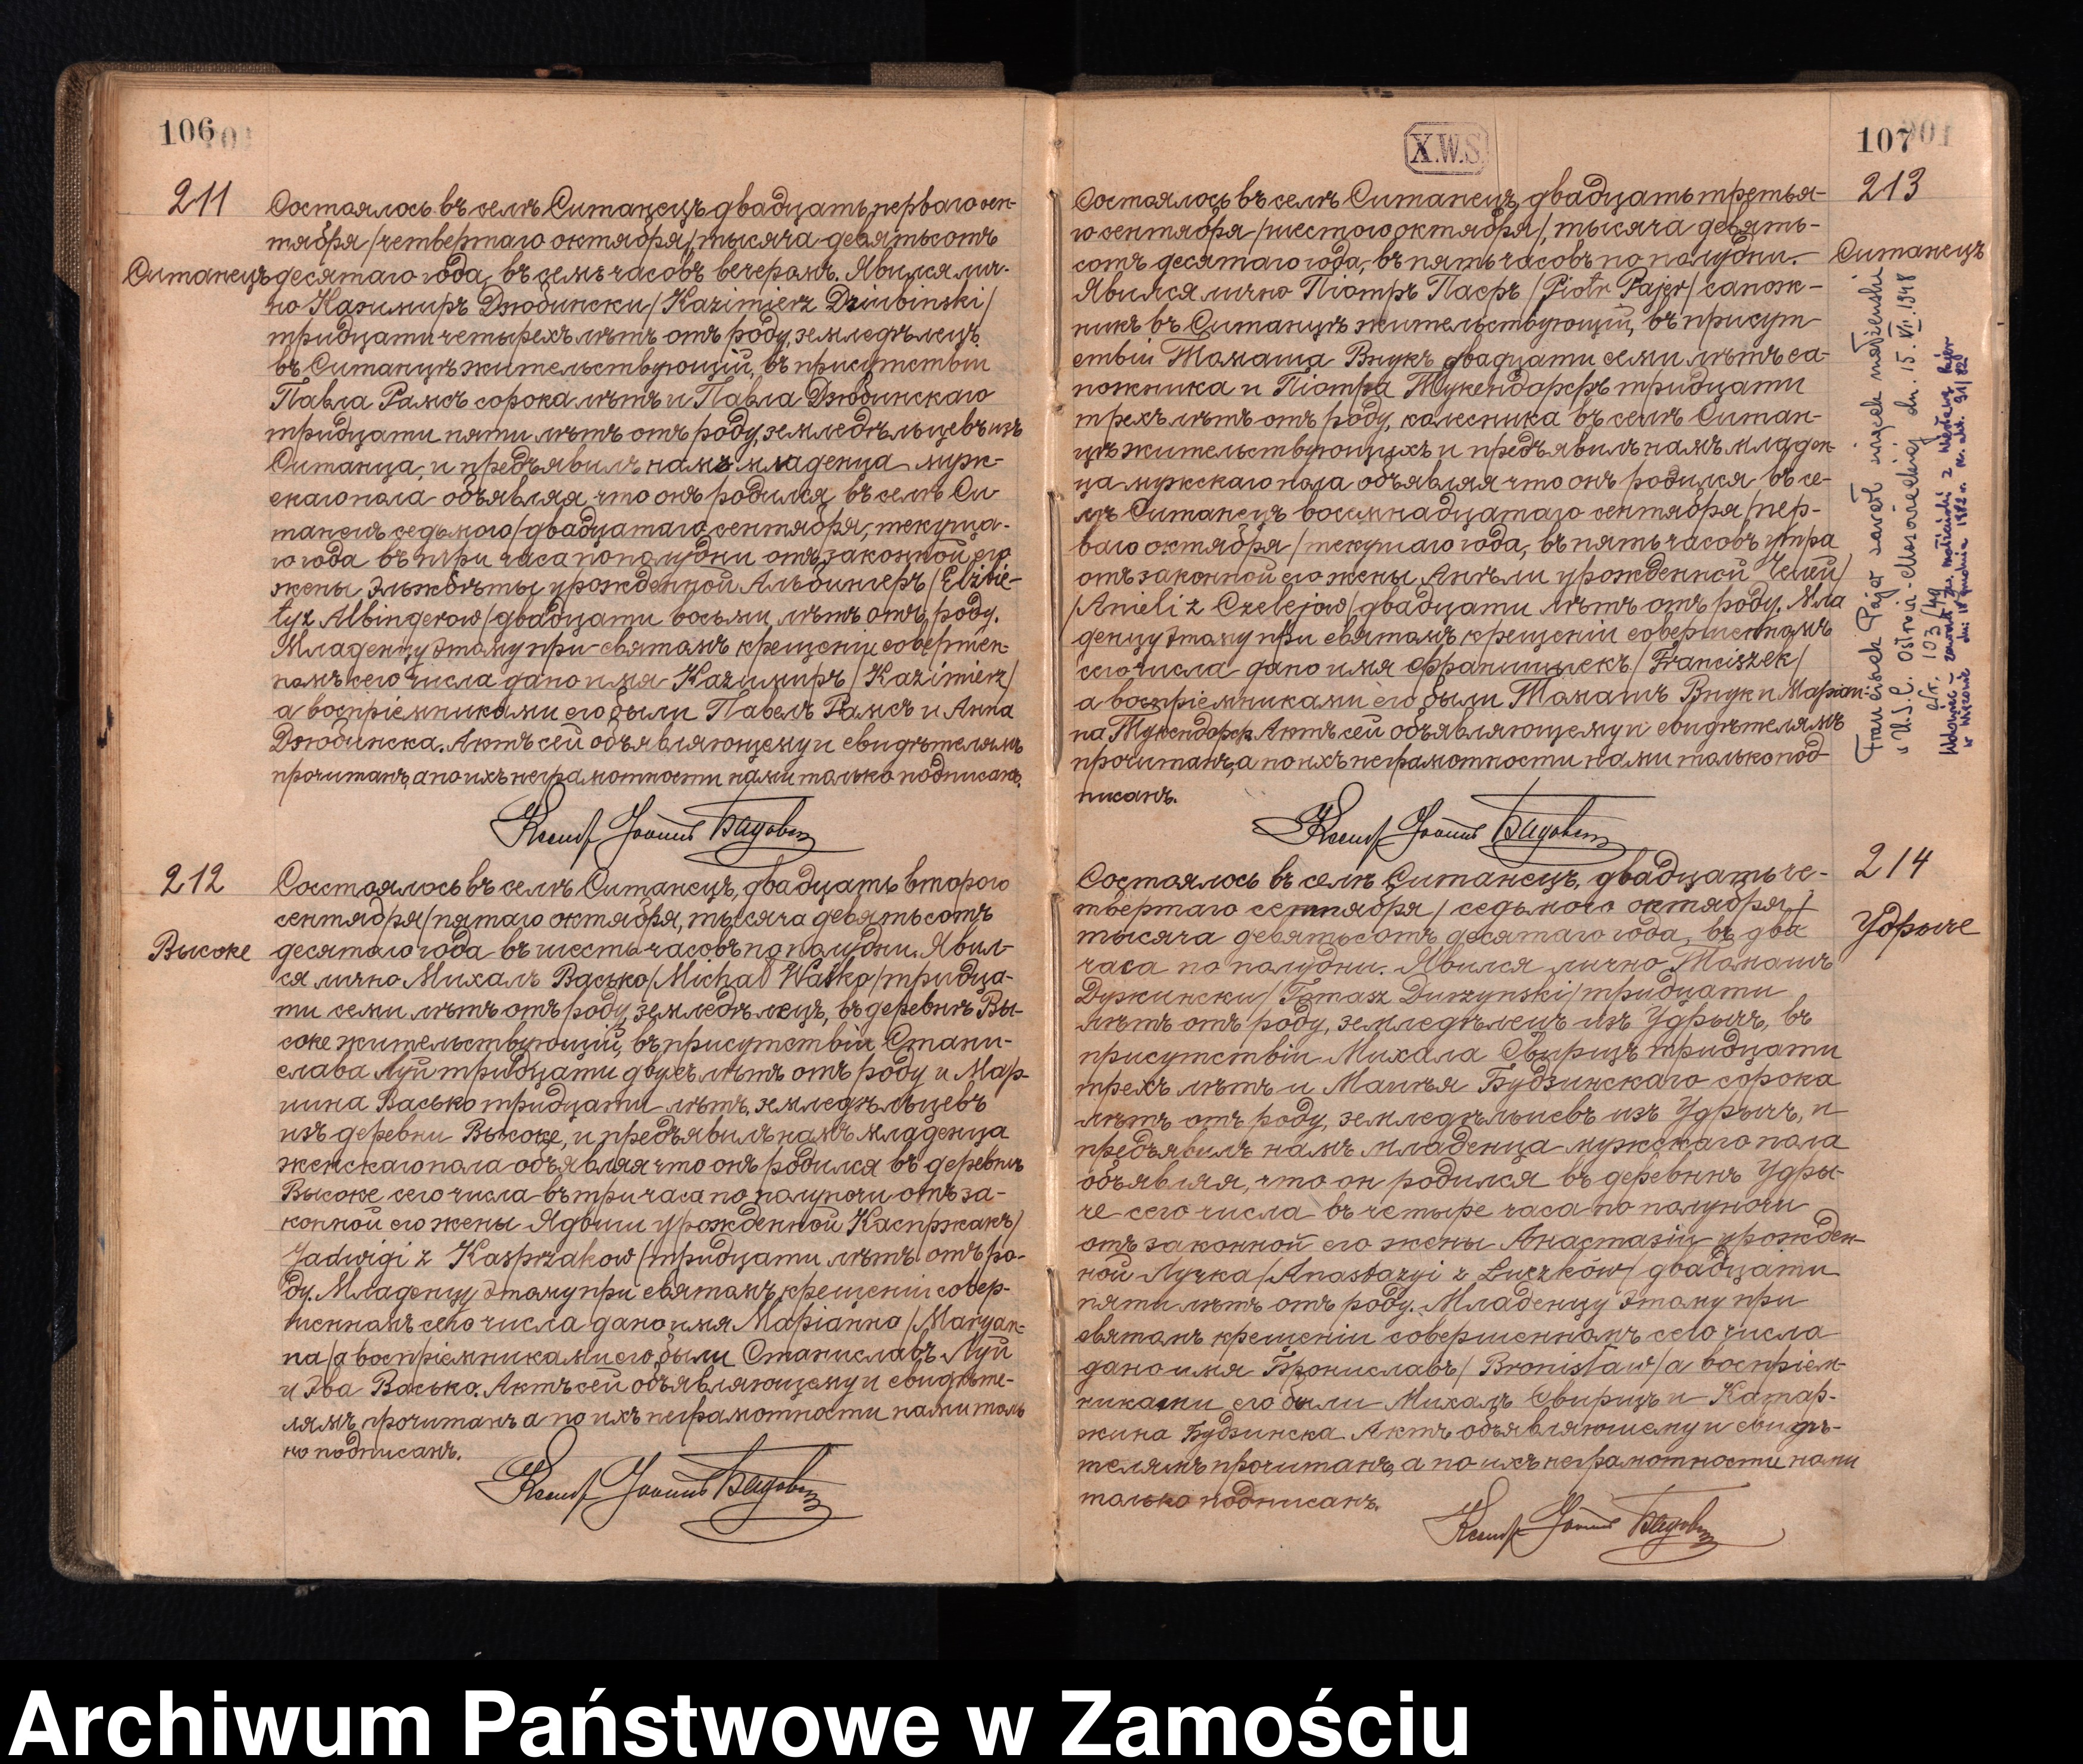 106
211
Ситанецъ
Состоялось въ селѣ Ситанецъ двадцать перваго сен-
тября /четвертаго октября/ тысяча девятьсотъ
десятаго года, въ семь часовъ вечеромъ. Явился лич-
но Казимиръ Дзюбински /Kazimierz Dziubinski/
тридцати четырехъ лѣтъ отъ роду, земледѣлецъ
въ Ситанцѣ жительствующій, въ присутствіи
Павла Рамсъ сорока лѣтъ и Павла Дзюбинскаго
тридцати пяти лѣтъ отъ роду, земледѣльцевъ изъ
Ситанца, и предъявилъ намъ младенца муж-
скаго пола объявляя что онъ родился въ селѣ Си-
танецъ седьмого /двадцатаго сентября, текуща-
го года въ три часа пополудни отъ законной его
жены Эльжбѣты урожденной Альбингеръ /Elżbie-
ty z Albingerow/ двадцати восьми лѣтъ отъ роду.
Младенцу этому при святомъ крещеніи совершен-
номъ сего числа дано имя Казимиръ /Kazimierz/
а воспріемниками его были Павелъ Рамсъ и Анна
Дзюбинска. Актъ сей объявляющему и свидѣтелямъ
прочитанъ, а по ихъ неграмотности нами только подписанъ.
212
Высоке
Состоялось въ селѣ Ситанецъ, двадцать второго
сентября /пятаго октября, тысяча девятьсотъ
десятаго года въ шесть часовъ по полудни. Явил-
ся лично Михалъ Васько /Michał Waśko/ тридца-
ти семи лѣтъ отъ роду, земледѣлецъ, въ деревнѣ Вы-
соке жительствующій, въ присутствіи Стани-
слава Луй тридцати двухъ лѣтъ отъ роду и Мар-
цина Васько тридцати лѣтъ, земледѣльцевъ
изъ деревни Высоке, и предъявилъ намъ младенца
женскаго пола объявляя что онъ родился въ деревнѣ
Высоке сего числа въ три часа по полуночи отъ за-
конной его жены Ядвиги урожденной Каспржакъ/
Jadwigi z Kasprzakow/ тридцати лѣтъ отъ ро-
ду. Младенцу этому при святомъ крещеніи совер-
шенномъ сего числа дано имя Маріанна /Maryan-
na/ а воспріемниками его были Станиславъ Луй
и Эва Васько. Актъ сей объявляющему и свидѣте-
лямъ прочитанъ а по ихъ неграмотности нами толь
ко подписанъ.
X.W.S.
107
213
Ситанецъ
Состоялось въ селѣ Ситанецъ двадцать третья-
го сентября /шестого октября/, тысяча девять-
сотъ десятаго года, въ пять часовъ по полудни.
Явился лично Піотръ Паеръ /Piotr Pajer/ сапож-
никъ въ Ситанцѣ жительствующій, въ присут
ствіи Томаша Внукъ двадцати семи лѣтъ са-
пожника и Піотра Тукендорфъ тридцати
трехъ лѣтъ отъ роду, колесника въ селѣ Ситан-
цѣ жительствующихъ и предъявилъ намъ младен-
ца мужскаго пола объявляя что онъ родился въ се-
лѣ Ситанецъ восемнадцатаго сентября /пер-
ваго октября /текущаго года, въ пять часовъ утра
отъ законной его жены Анѣли урожденной Челей/
/Anieli z Czelejow/ двадцати лѣтъ отъ роду. Мла
денцу этому при святомъ крещеніи совершенномъ
сего числа дано имя Францишекъ /Franciszek/
а воспріемниками его были Томашъ Внукъ и Маріан-
на Тукендорф. Актъ сей объявляющему и свидѣтелямъ
прочитанъ, а по ихъ неграмотности нами только под-
писанъ.
Franciszek Pajer zawarł związek małżeński
w U.S.C. Ostrów-Mazowiecki dn. 15.VII.1948
103/49
214
Удрыче
Состоялось въ селѣ Ситанецъ, двадцать че-
твертаго сентября /седьмого октября/
тысяча девятьсотъ десятаго года, въ два
часа по полудни. Явился лично Томашъ
Дужински /Tomasz Durzynski/ тридцати
лѣтъ отъ роду, земледѣлецъ изъ Удрычъ, въ
присутствіи Михала Свирщъ тридцати
трехъ лѣтъ и Мацѣя Будзинскаго сорока
лѣтъ отъ роду, земледѣльцевъ изъ Удрычъ, и
предъявилъ намъ младенца мужскаго пола
объявляя, что он родился въ деревнѣ Удры-
че сего числа въ четыре часа по полуночи
отъ законной его жены Анастазіи урожден-
ной Лучка /Anastazyi z Łuczków/ двадцати
пяти лѣтъ отъ роду. Младенцу этому при
святомъ крещеніи совершенномъ сего числа
дано имя Брониславъ /Bronisław/ а воспріем-
никами его были Михалъ Свирщъ и Катар-
жина Будзинска. Актъ объявляющему и свидѣ-
телямъ прочитанъ, а по ихъ неграмотности нами
только подписанъ.
Archiwum Państwowe w Zamościu